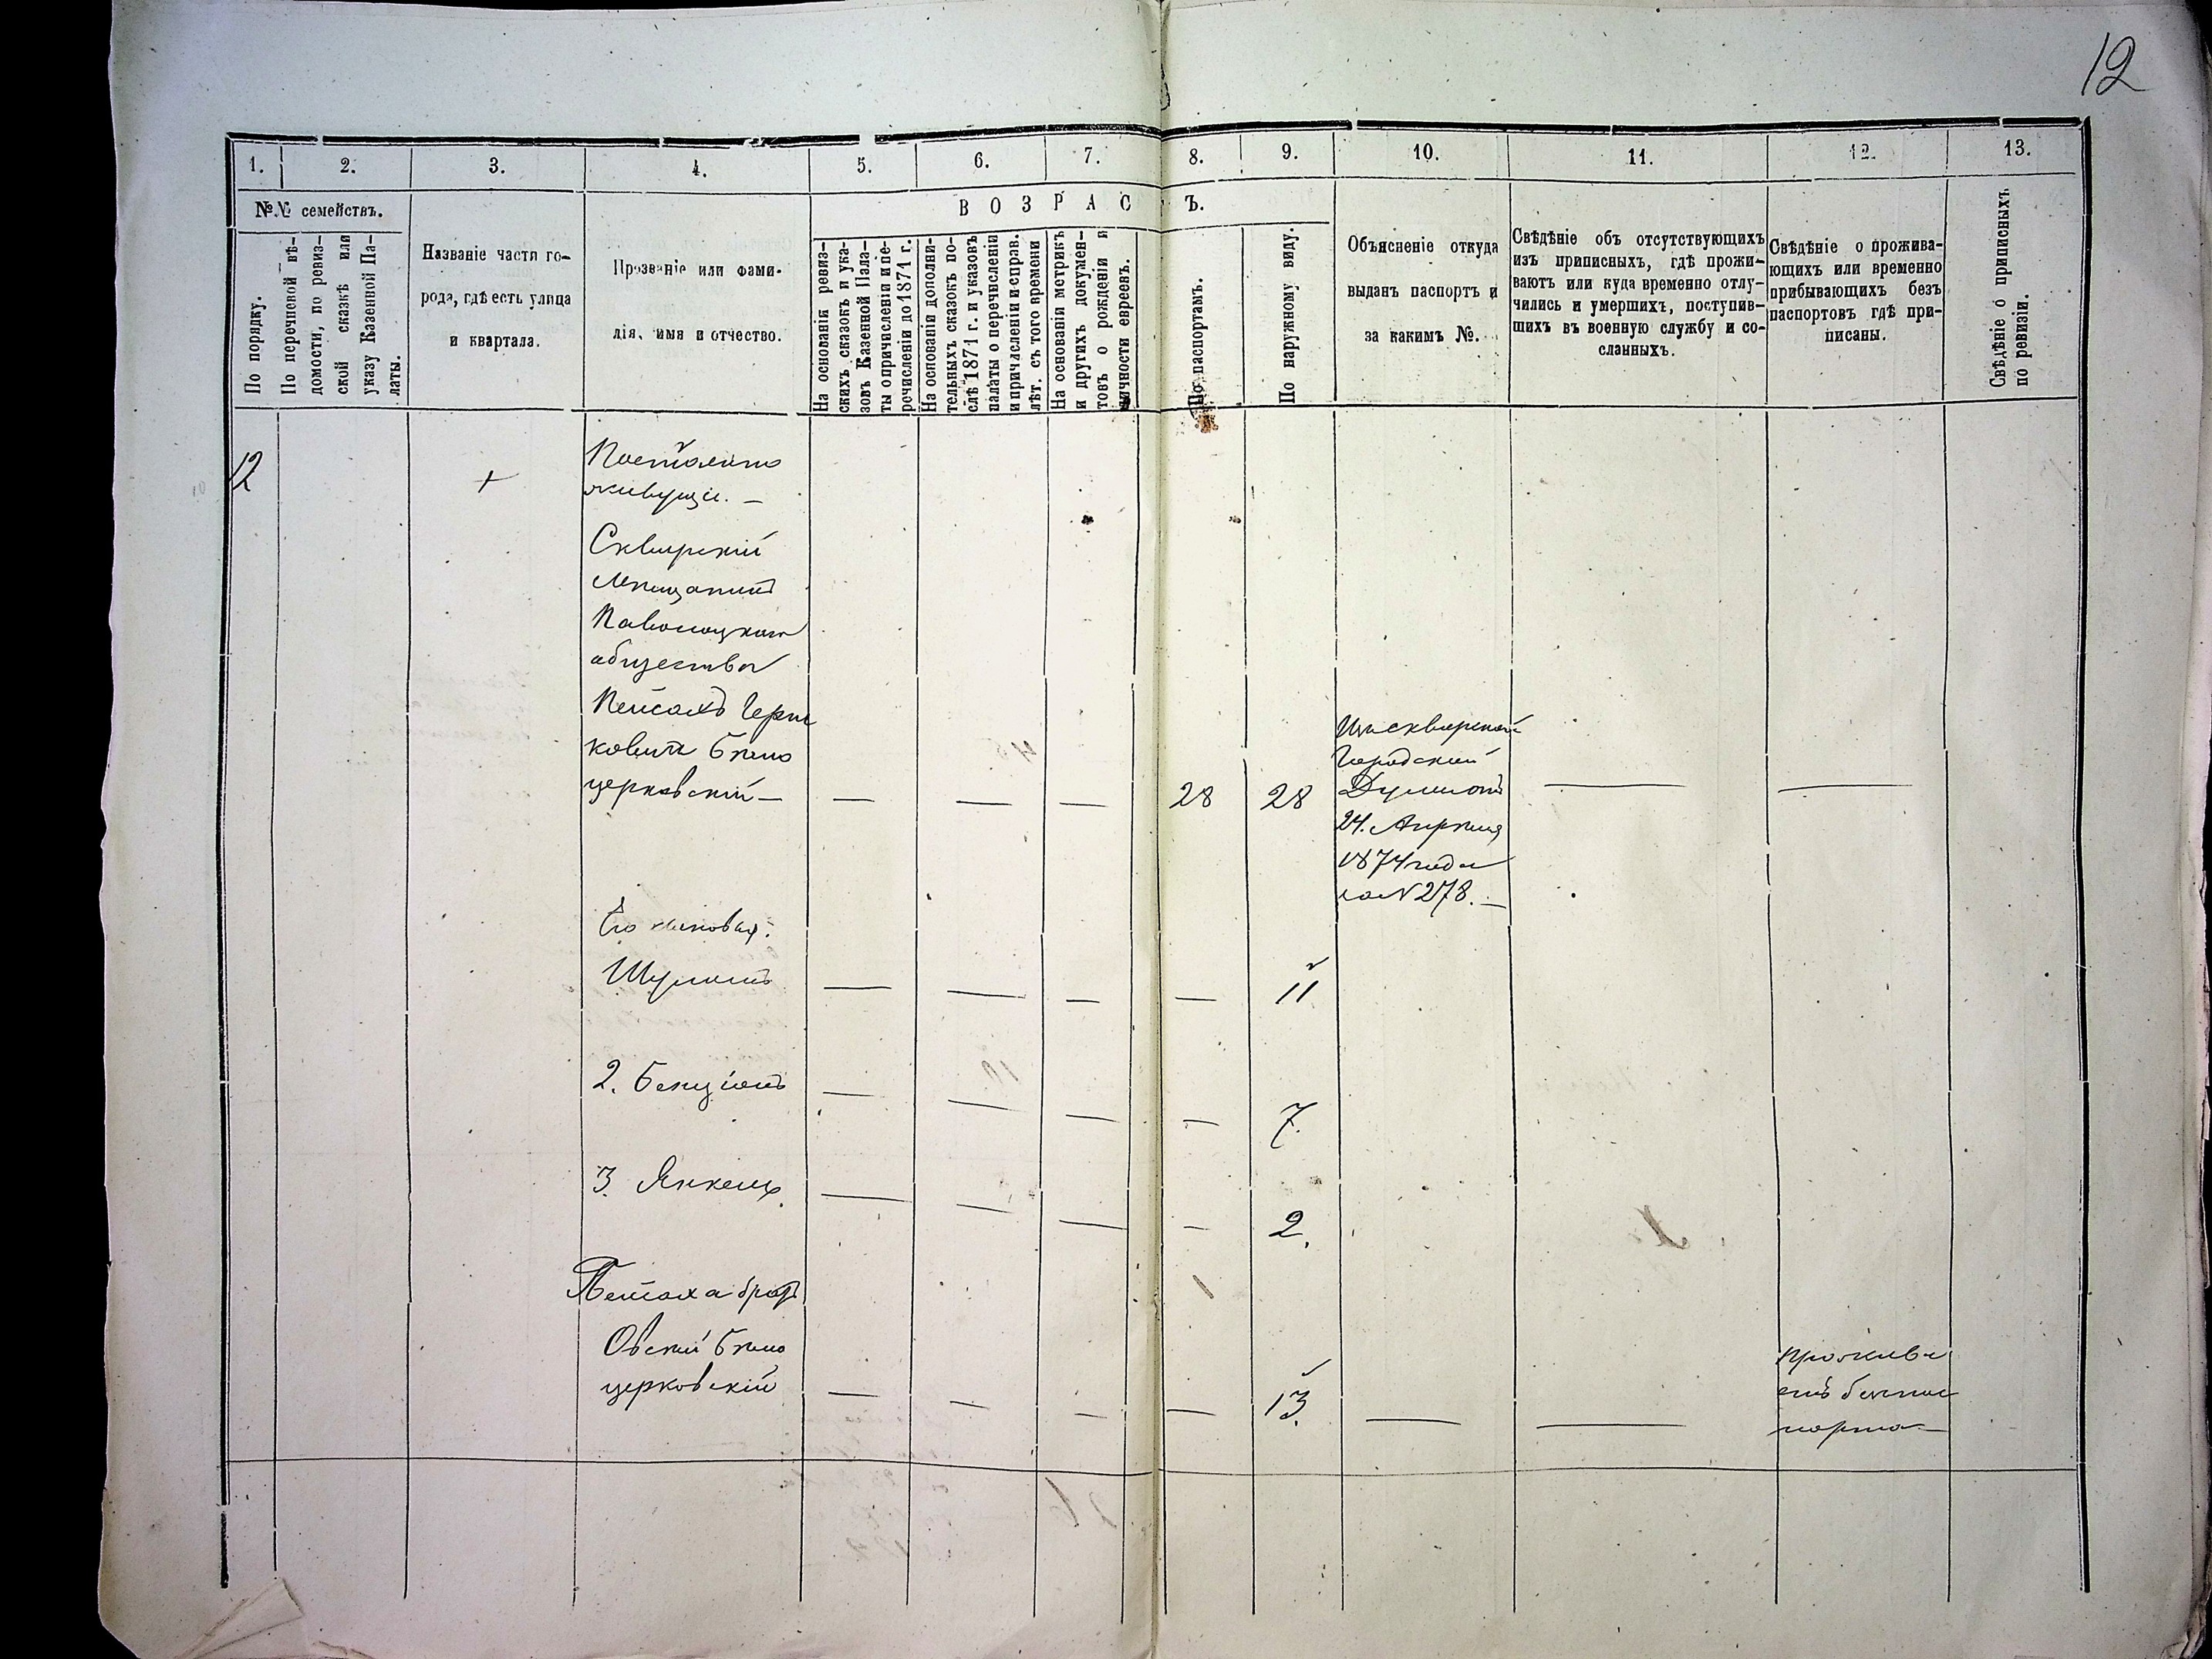 12
1.
2.
3.
4.
5.
6.
7.
8.
9.
10.
11.
12.
13.
№№ семействъ.
ВОЗРАСЪ.
По порядку.
По перечневой вѣ-
домости, по ревиз-
ской сказкѣ или
указу Казенной Па-
латы.
Названіе части го-
рода, гдѣ есть улица
и квартала.
Прозваніе или фами-
лія, имя и отчество.
На основаніи ревиз-
скихъ сказокъ и ука-
зовъ Казенной Пала-
ты о причисленіи и пе-
речисленіи до 1871 г.
На основаніи дополни-
тельныхъ сказокъ по-
слѣ 1871 г. и указовъ
палаты о перечисленіи
и причисленіи и справ.
лѣт. съ того времени
На основаніи метрикъ
и другихъ докумен-
товъ о рожденіи и
личности евреевъ.
По паспортамъ.
По наружному виду.
Объясненіе откуда
выданъ паспортъ и
за какимъ №.
Свѣдѣніе объ отсутствующихъ
изъ приписныхъ, гдѣ прожи-
ваютъ или куда временно отлу-
чились и умершихъ, поступив-
шихъ въ военную службу и со-
сланныхъ.
Свѣдѣніе о прожива-
ющихъ или временно
прибывающихъ безъ
паспортовъ гдѣ при-
писаны.
Свѣдѣніе о приписныхъ
по ревизіи.
12
+
Постоянно
живущіе. —
Сквирскій
мѣщанинъ
Паволоцкаго
общества
Пейсахъ Герш
ковичъ Бѣло
церковскій — — — — 28 28
Изъ сквирской
Городской
Думы отъ
24. Апрѣля
1874 года
за N 278. —
Его сыновья:
Шулимъ — — — — 11
2. Бенціонъ — — — — 7.
3. Янкель — — — — 2.
Пейсаха братъ
Овсѣй Бѣло
церковскій — — — — 13. — —
прожива
етъ безъ пас
порта —